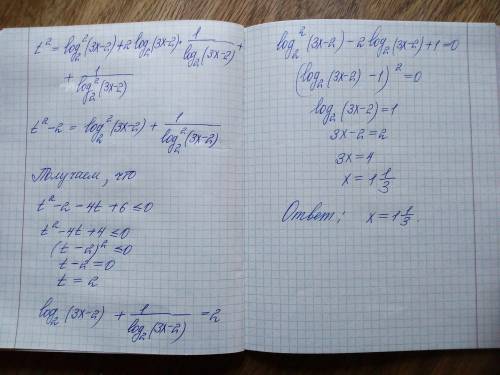 t² = log₂²(3x-2) + 2 log₂(3x-2) · 1/log₂(3x-2) +
+ 1/log₂²(3x-2)
t² - 2 = log₂²(3x-2) + 1/log₂²(3x-2)
Получаем, что
t² - 2 - 4t + 6 ≤ 0
t² - 4t + 4 ≤ 0
(t - 2)² ≤ 0
t - 2 = 0
t = 2
log₂(3x-2) + 1/log₂(3x-2) = 2
log₂²(3x-2) - 2 log₂(3x-2) + 1 = 0
(log₂(3x-2) - 1)² = 0
log₂(3x-2) = 1
3x - 2 = 2
3x = 4
x = 1 1/3
Ответ: x = 1 1/3.